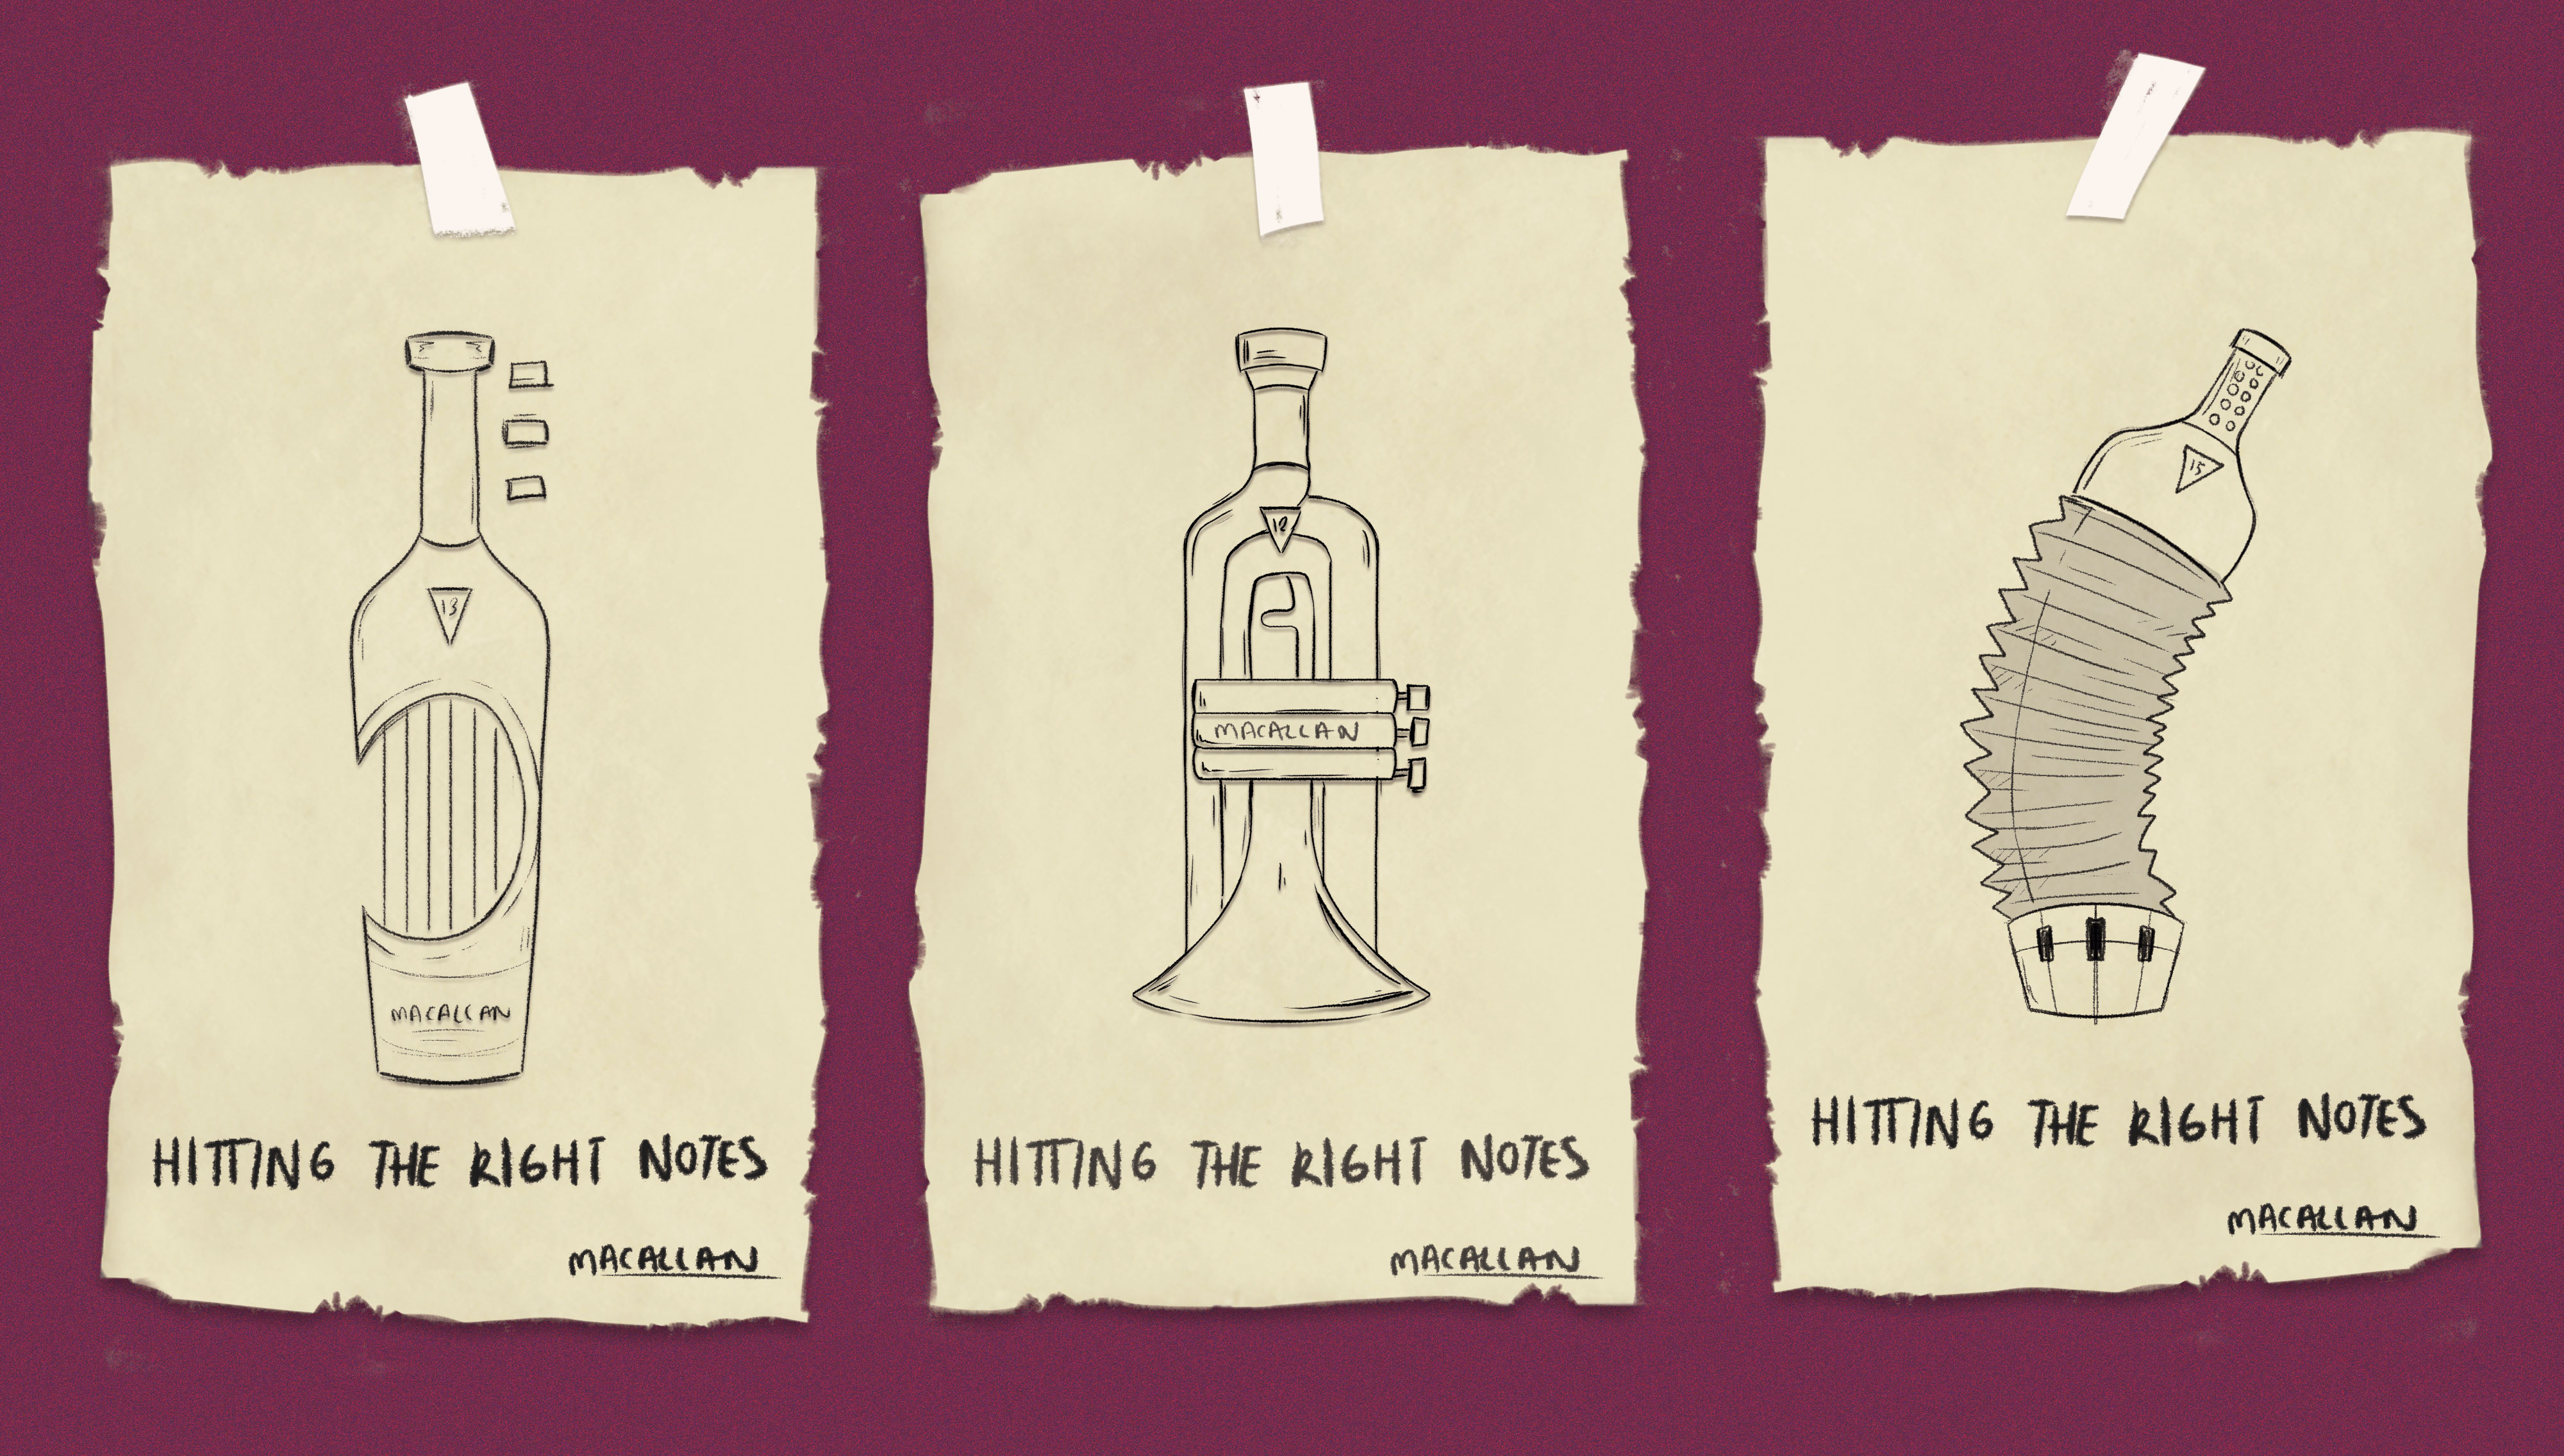 13
MACALLAN
HITTING THE RIGHT NOTES
MACALLAN
12
MACALLAN
HITTING THE RIGHT NOTES
MACALLAN
15
HITTING THE RIGHT NOTES
MACALLAN